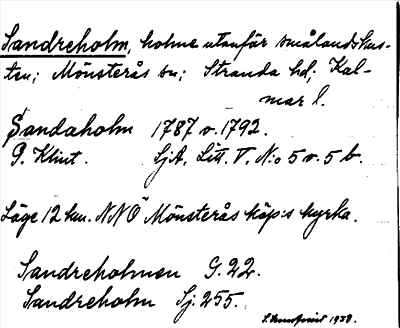 Sandreholm, holme utanför smålandskus-
ten; Mönsterås sn; Stranda hd; Kal-
mar l.
Sandaholm 1787 o. 1792.
G. Klint. SjA. Litt. V. N:o 5 o. 5 b.
Läge 12 km. NNÖ Mönsterås köp:s kyrka.
Sandreholmen G. 22.
Sandreholm Sj. 255.
1938.